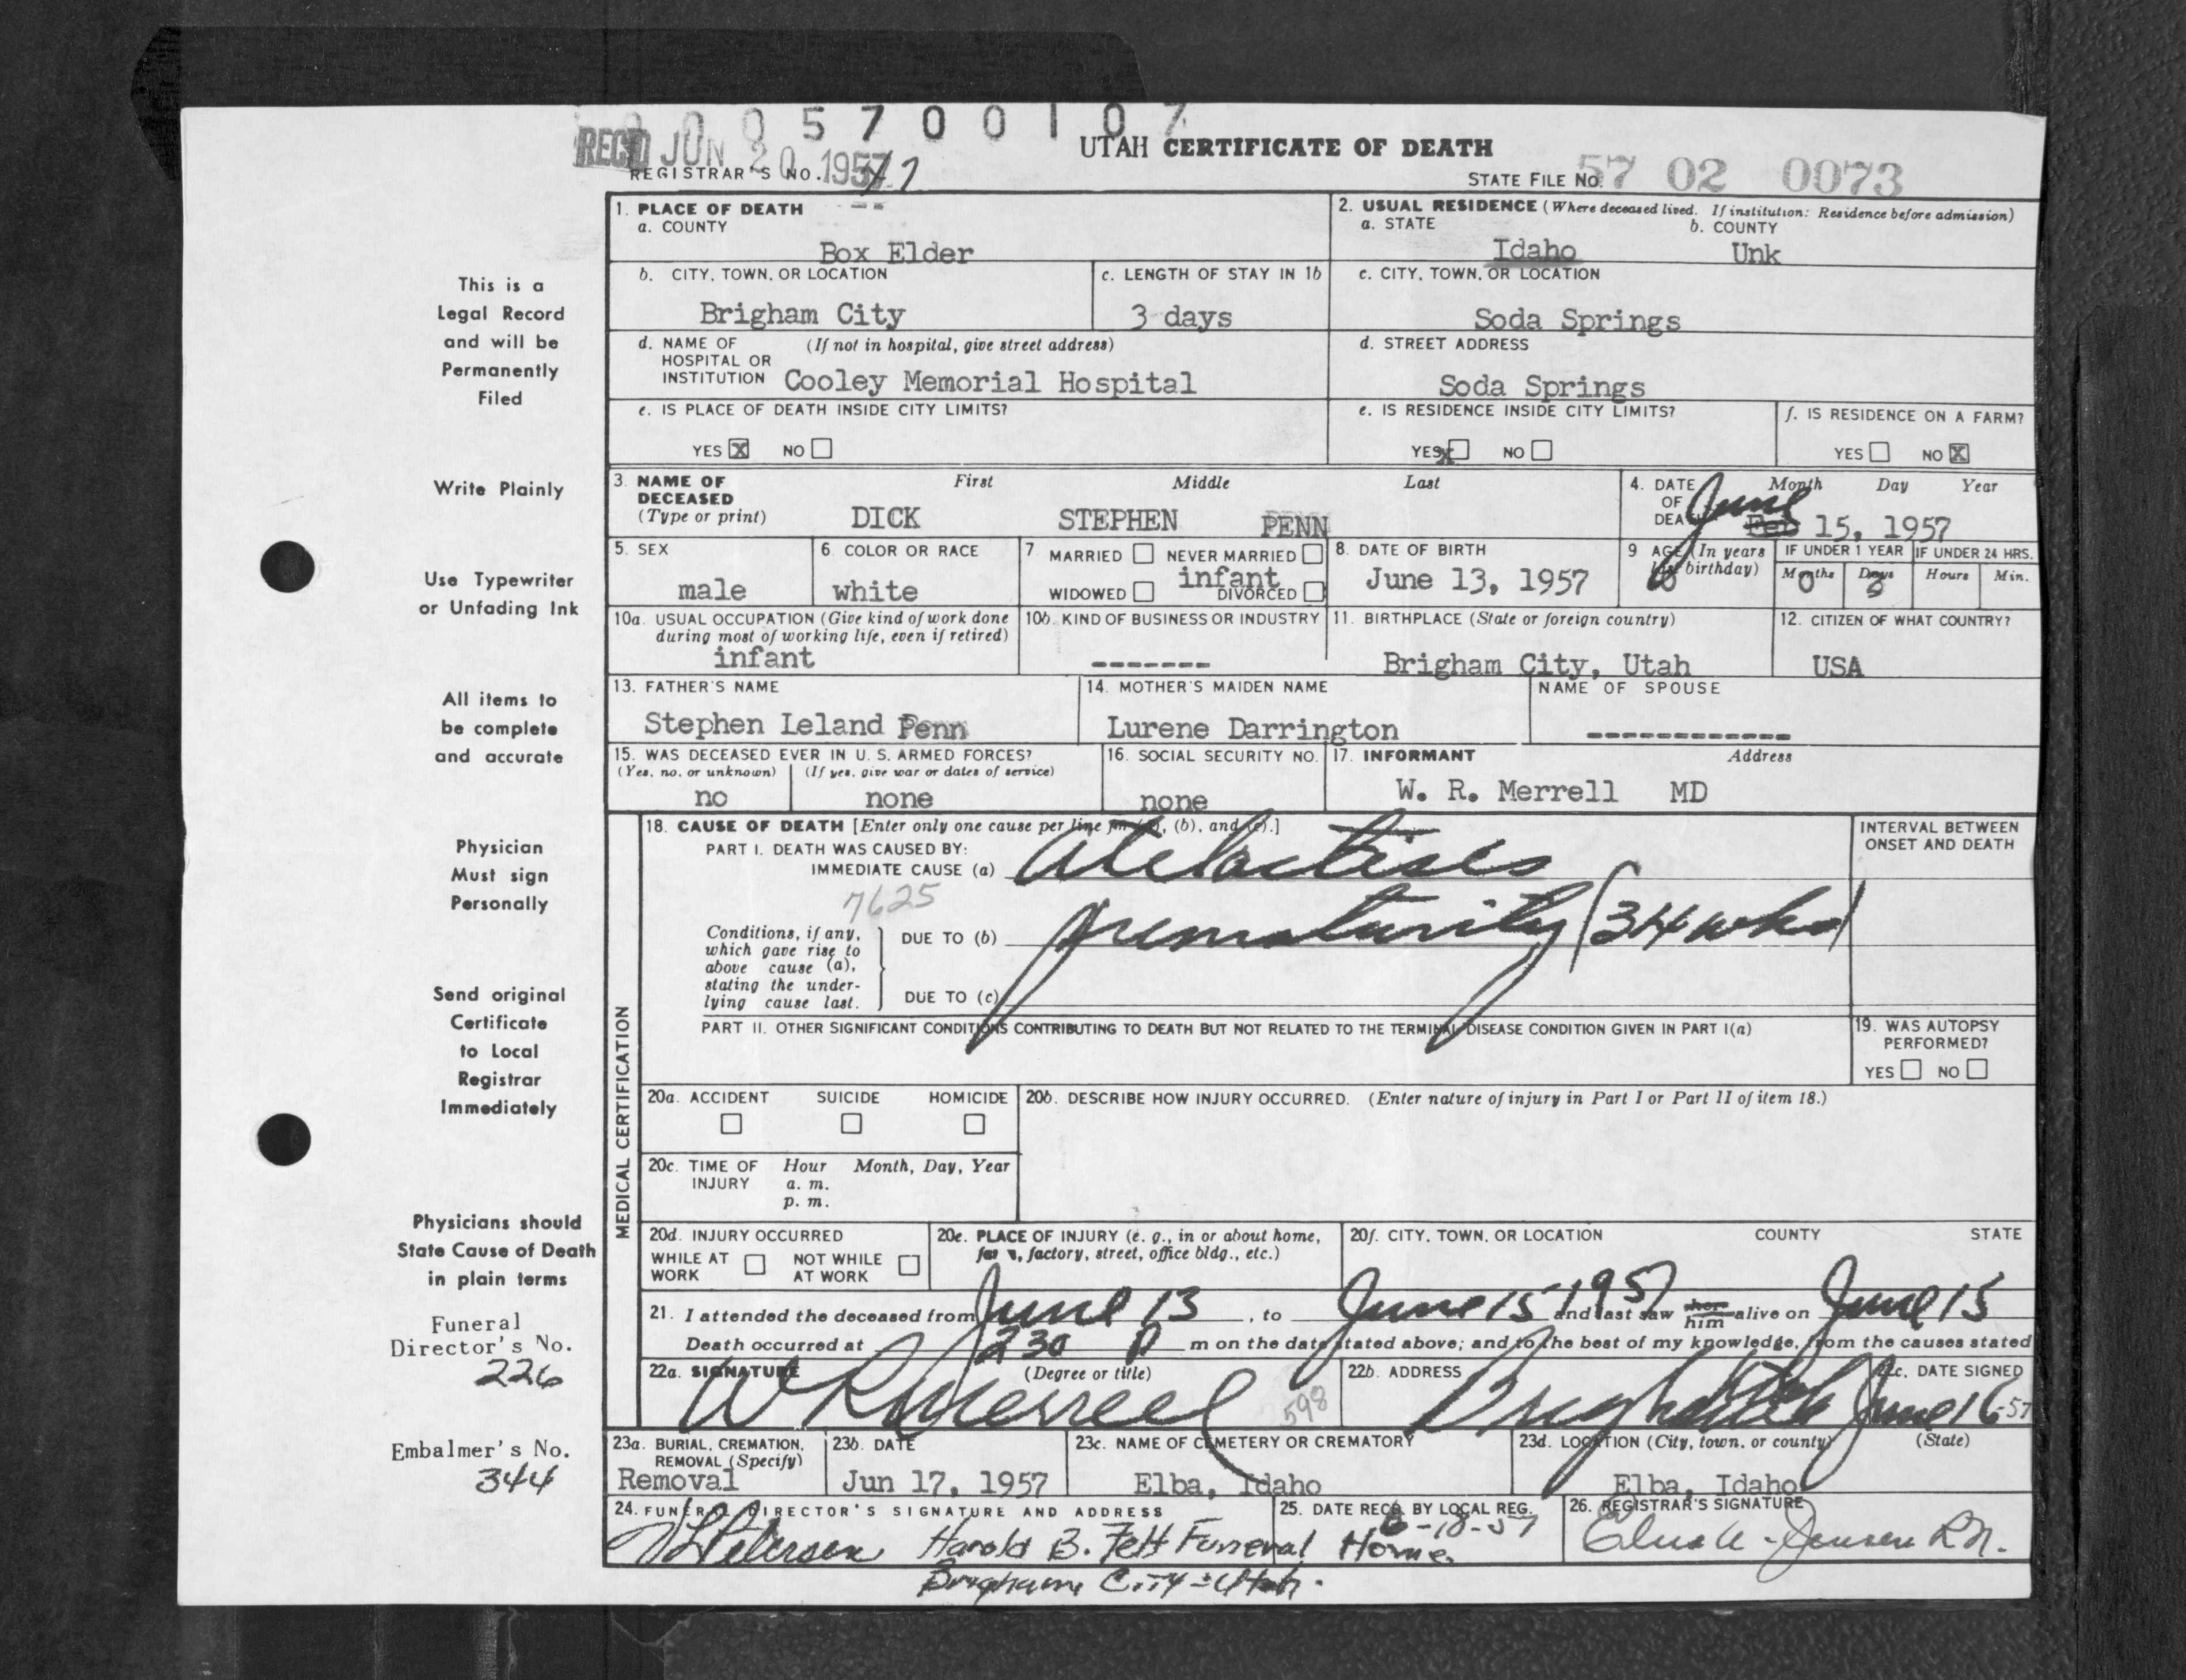 0 0 0 5 7 0 0 1 0 7
REC'D JUN 20 1957
UTAH CERTIFICATE OF DEATH
REGISTRAR'S NO.
STATE FILE NO. 57 02 0073
1. PLACE OF DEATH
a. COUNTY
Box Elder
2. USUAL RESIDENCE (Where deceased lived. If institution: Residence before admission)
a. STATE b. COUNTY
Idaho Unk
b. CITY, TOWN, OR LOCATION
Brigham City
c. LENGTH OF STAY IN 1b
3 days
c. CITY, TOWN, OR LOCATION
Soda Springs
d. NAME OF (If not in hospital, give street address)
HOSPITAL OR
INSTITUTION Cooley Memorial Hospital
d. STREET ADDRESS
Soda Springs
e. IS PLACE OF DEATH INSIDE CITY LIMITS?
YES X NO
e. IS RESIDENCE INSIDE CITY LIMITS?
YES x NO
f. IS RESIDENCE ON A FARM?
YES NO X
3. NAME OF DECEASED (Type or print)
First Middle Last
DICK STEPHEN PENN
4. DATE OF DEATH
Month Day Year
June Feb 15, 1957
5. SEX
male
6. COLOR OR RACE
white
7 MARRIED NEVER MARRIED
infant
WIDOWED DIVORCED
8. DATE OF BIRTH
June 13, 1957
9 AGE (In years last birthday)
IF UNDER 1 YEAR IF UNDER 24 HRS.
Months Days Hours Min.
0
10a. USUAL OCCUPATION (Give kind of work done
during most of working life, even if retired)
infant
10b. KIND OF BUSINESS OR INDUSTRY
-------
11. BIRTHPLACE (State or foreign country)
Brigham City, Utah
12. CITIZEN OF WHAT COUNTRY?
USA
13. FATHER'S NAME
Stephen Leland Penn
14. MOTHER'S MAIDEN NAME
Lurene Darrington
NAME OF SPOUSE
------------
15. WAS DECEASED EVER IN U. S. ARMED FORCES?
(Yes, no, or unknown) (If yes, give war or dates of service)
no none
16. SOCIAL SECURITY NO.
none
17. INFORMANT Address
W. R. Merrell MD
MEDICAL CERTIFICATION
18. CAUSE OF DEATH [Enter only one cause per line for (a), (b), and (c).]
PART I. DEATH WAS CAUSED BY:
IMMEDIATE CAUSE (a) Atelactises
7625
INTERVAL BETWEEN
ONSET AND DEATH
Conditions, if any,
which gave rise to
above cause (a),
stating the under-
lying cause last.
DUE TO (b) prematurity (34 wks)
DUE TO (c)
PART II. OTHER SIGNIFICANT CONDITIONS CONTRIBUTING TO DEATH BUT NOT RELATED TO THE TERMINAL DISEASE CONDITION GIVEN IN PART I(a)
19. WAS AUTOPSY
PERFORMED?
YES NO
20a. ACCIDENT SUICIDE HOMICIDE
20b. DESCRIBE HOW INJURY OCCURRED. (Enter nature of injury in Part I or Part II of item 18.)
20c. TIME OF INJURY Hour Month, Day, Year
a. m.
p. m.
20d. INJURY OCCURRED
WHILE AT WORK NOT WHILE AT WORK
20e. PLACE OF INJURY (e. g., in or about home,
farm, factory, street, office bldg., etc.)
20f. CITY, TOWN, OR LOCATION COUNTY STATE
21. I attended the deceased from June 13, to June 15 1957 and last saw her him alive on June 15
Death occurred at 230 P m on the date stated above; and to the best of my knowledge, from the causes stated
22a. SIGNATURE (Degree or title)
W R Merrell
598
22b. ADDRESS
Brigham City
22c. DATE SIGNED
June 16-57
23a. BURIAL, CREMATION,
REMOVAL (Specify)
Removal
23b. DATE
Jun 17, 1957
23c. NAME OF CEMETERY OR CREMATORY
Elba, Idaho
23d. LOCATION (City, town, or county) (State)
Elba, Idaho
24. FUNERAL DIRECTOR'S SIGNATURE AND ADDRESS
Petersen Harold B. Felt Funeral Home
Brigham City - Utah.
25. DATE RECD. BY LOCAL REG.
6-18-57
26. REGISTRAR'S SIGNATURE
Jensen R.N.
This is a
Legal Record
and will be
Permanently
Filed
Write Plainly
Use Typewriter
or Unfading Ink
All items to
be complete
and accurate
Physician
Must sign
Personally
Send original
Certificate
to Local
Registrar
Immediately
Physicians should
State Cause of Death
in plain terms
Funeral
Director's No.
226
Embalmer's No.
344